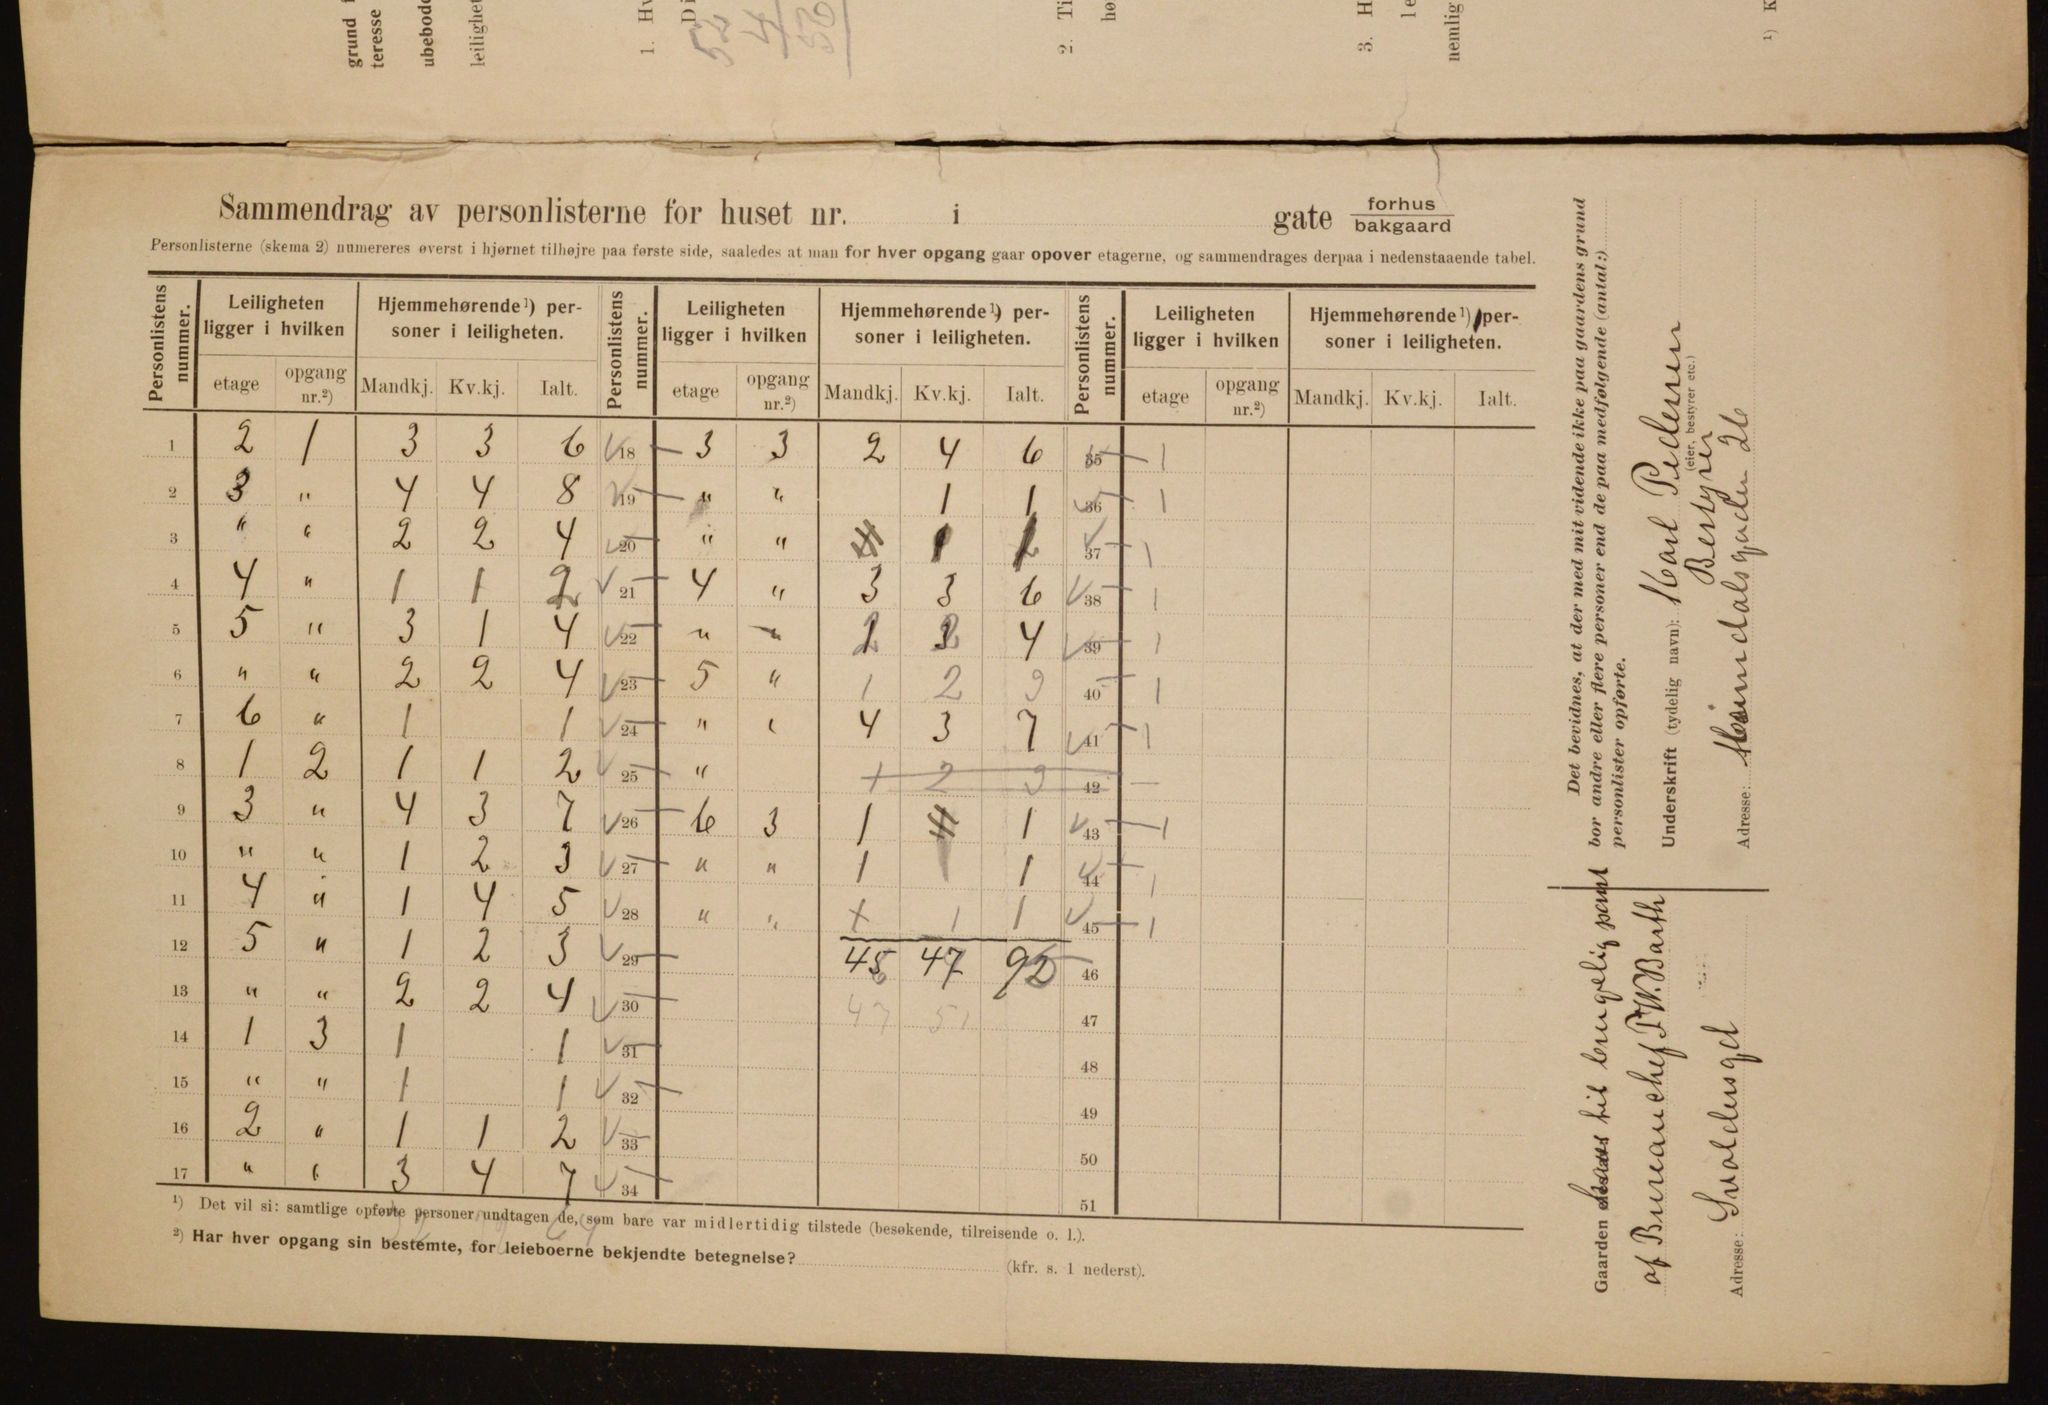 grund
teresse
ubebodd
leilighet
1. Hv
Di
52
4
56
2. Ti
hø
3. H
le
nemlig
¹) K
Sammendrag av personlisterne for huset nr. i gate forhus bakgaard
Personlisterne (skema 2) numereres øverst i hjørnet tilhøjre paa første side, saaledes at man for hver opgang gaar opover etagerne, og sammendrages derpaa i nedenstaaende tabel.
Personlistens nummer. Leiligheten ligger i hvilken Hjemmehørende¹) personer i leiligheten. Personlistens nummer. Leiligheten ligger i hvilken Hjemmehørende¹) personer i leiligheten. Personlistens nummer. Leiligheten ligger i hvilken Hjemmehørende¹) personer i leiligheten.
etage opgang nr.²) Mandkj. Kv.kj. Ialt. etage opgang nr.²) Mandkj. Kv.kj. Ialt. etage opgang nr.²) Mandkj. Kv.kj. Ialt.
1 2 1 3 3 6 18 3 3 2 4 6 35 1
2 3 " 4 4 8 19 " " 1 1 36 1
3 " " 2 2 4 20 " " 1 37 1
4 4 " 1 1 2 21 4 " 3 3 6 38 1
5 5 " 3 1 4 22 " " 4 39 1
6 " " 2 2 4 23 5 " 1 2 3 40 1
7 6 " 1 1 24 " " 4 3 7 41 1
8 1 2 1 1 2 25 " 1 2 3 42
9 3 " 4 3 7 26 6 3 1 1 43 1
10 " " 1 2 3 27 " " 1 1 44 1
11 4 " 1 4 5 28 " " 1 1 45 1
12 5 " 1 2 3 29 47 46
13 " " 2 2 4 30 47 51 47
14 1 3 1 1 31 48
15 " " 1 1 32 49
16 2 " 1 1 2 33 50
17 " " 3 4 7 34 51
¹) Det vil si: samtlige opførte personer undtagen de, som bare var midlertidig tilstede (besøkende, tilreisende o. l.).
²) Har hver opgang sin bestemte, for leieboerne bekjendte betegnelse?
(kfr. s. 1 nederst).
Det bevidnes, at der med mit vidende ikke paa gaardens grund
bor andre eller flere personer end de paa medfølgende (antal:)
personlister opførte.
Underskrift (tydelig navn): Karl Pedersen
(eier, bestyrer etc.)
Bestyrer
Adresse: Heimdalsgaden 26
Gaarden til
af Bureauchef P.W. Barth
Adresse: Svoldersgd